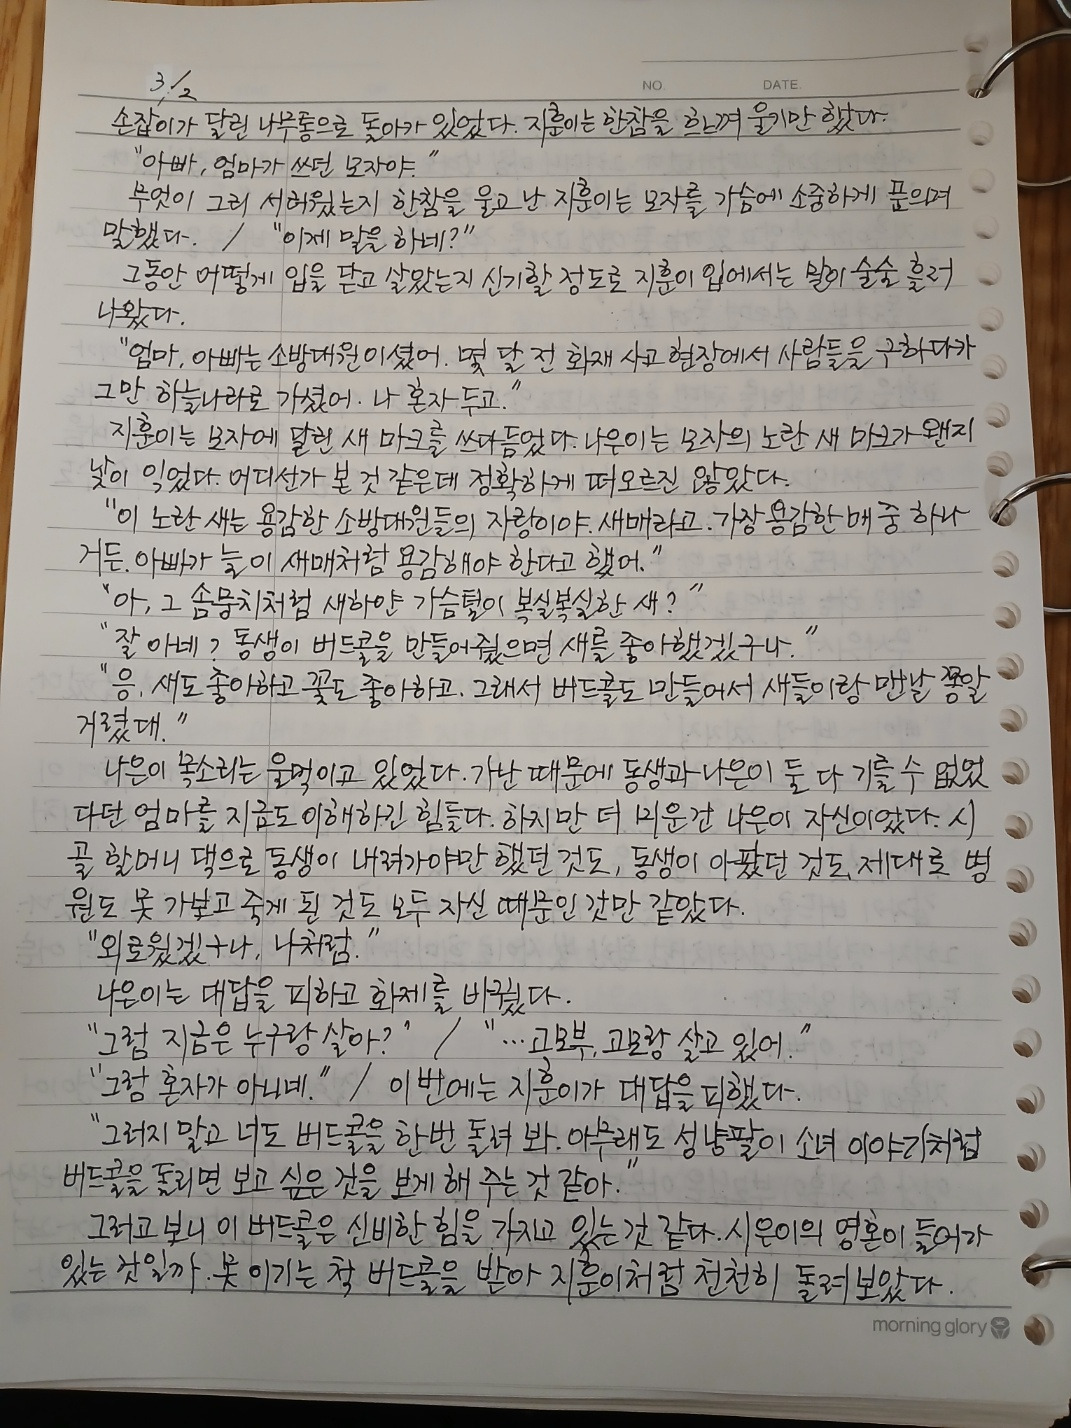 3/2
NO. DATE.
손잡이가 달린 나무통으로 돌아가 있었다. 지훈이는 한참을 흐느껴 울기만 했다.
"아빠, 엄마가 쓰던 모자야."
무엇이 그리 서러웠는지 한참을 울고 난 지훈이는 모자를 가슴에 소중하게 품으며
말했다. / "이제 말을 하네?"
그동안 어떻게 입을 닫고 살았는지 신기할 정도로 지훈이 입에서는 말이 술술 흘러
나왔다.
"엄마, 아빠는 소방대원이셨어. 몇 달 전 화재 사고 현장에서 사람들을 구하다가
그만 하늘나라로 가셨어. 나 혼자 두고."
지훈이는 모자에 달린 새 마크를 쓰다듬었다. 나은이는 모자의 노란 새 마크가 왠지
낯이 익었다. 어디선가 본 것 같은데 정확하게 떠오르진 않았다.
"이 노란 새는 용감한 소방대원들의 자랑이야. 새매라고. 가장 용감한 매 중 하나
거든. 아빠가 늘 이 새매처럼 용감해야 한다고 했어."
"아, 그 솜뭉치처럼 새하얀 가슴털이 복실복실한 새?"
"잘 아네? 동생이 버드콜을 만들어줬으면 새를 좋아했겠구나."
"응, 새도 좋아하고 꽃도 좋아하고. 그래서 버드콜도 만들어서 새들이랑 맨날 쫑알
거렸대."
나은이 목소리는 울먹이고 있었다. 가난 때문에 동생과 나은이 둘 다 기를 수 없었
다던 엄마를 지금도 이해하긴 힘들다. 하지만 더 미운건 나은이 자신이었다. 시
골 할머니 댁으로 동생이 내려가야만 했던 것도, 동생이 아팠던 것도, 제대로 병
원도 못 가보고 죽게 된 것도 모두 자신 때문인 것만 같았다.
"외로웠겠구나, 나처럼."
나은이는 대답을 피하고 화제를 바꿨다.
"그럼 지금은 누구랑 살아?" / "…고모부, 고모랑 살고 있어."
"그럼 혼자가 아니네." / 이번에는 지훈이가 대답을 피했다.
"그러지 말고 너도 버드콜을 한번 돌려 봐. 아무래도 성냥팔이 소녀 이야기처럼
버드콜을 돌리면 보고 싶은 것을 보게 해 주는 것 같아."
그러고 보니 이 버드콜은 신비한 힘을 가지고 있는 것 같다. 시은이의 영혼이 들어가
있는 것일까. 못 이기는 척 버드콜을 받아 지훈이처럼 천천히 돌려 보았다.
morning glory